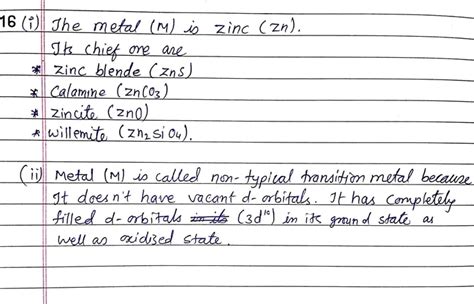 16 (i) The metal (M) is zinc (Zn).
Its chief ore are
* Zinc blende (ZnS)
* Calamine (ZnCO3)
* Zincite (ZnO)
* Willemite (Zn2SiO4).
(ii) Metal (M) is called non-typical transition metal because
It doesn't have vacant d-orbitals. It has completely
filled d-orbitals (3d¹⁰) in its ground state as
well as oxidized state.